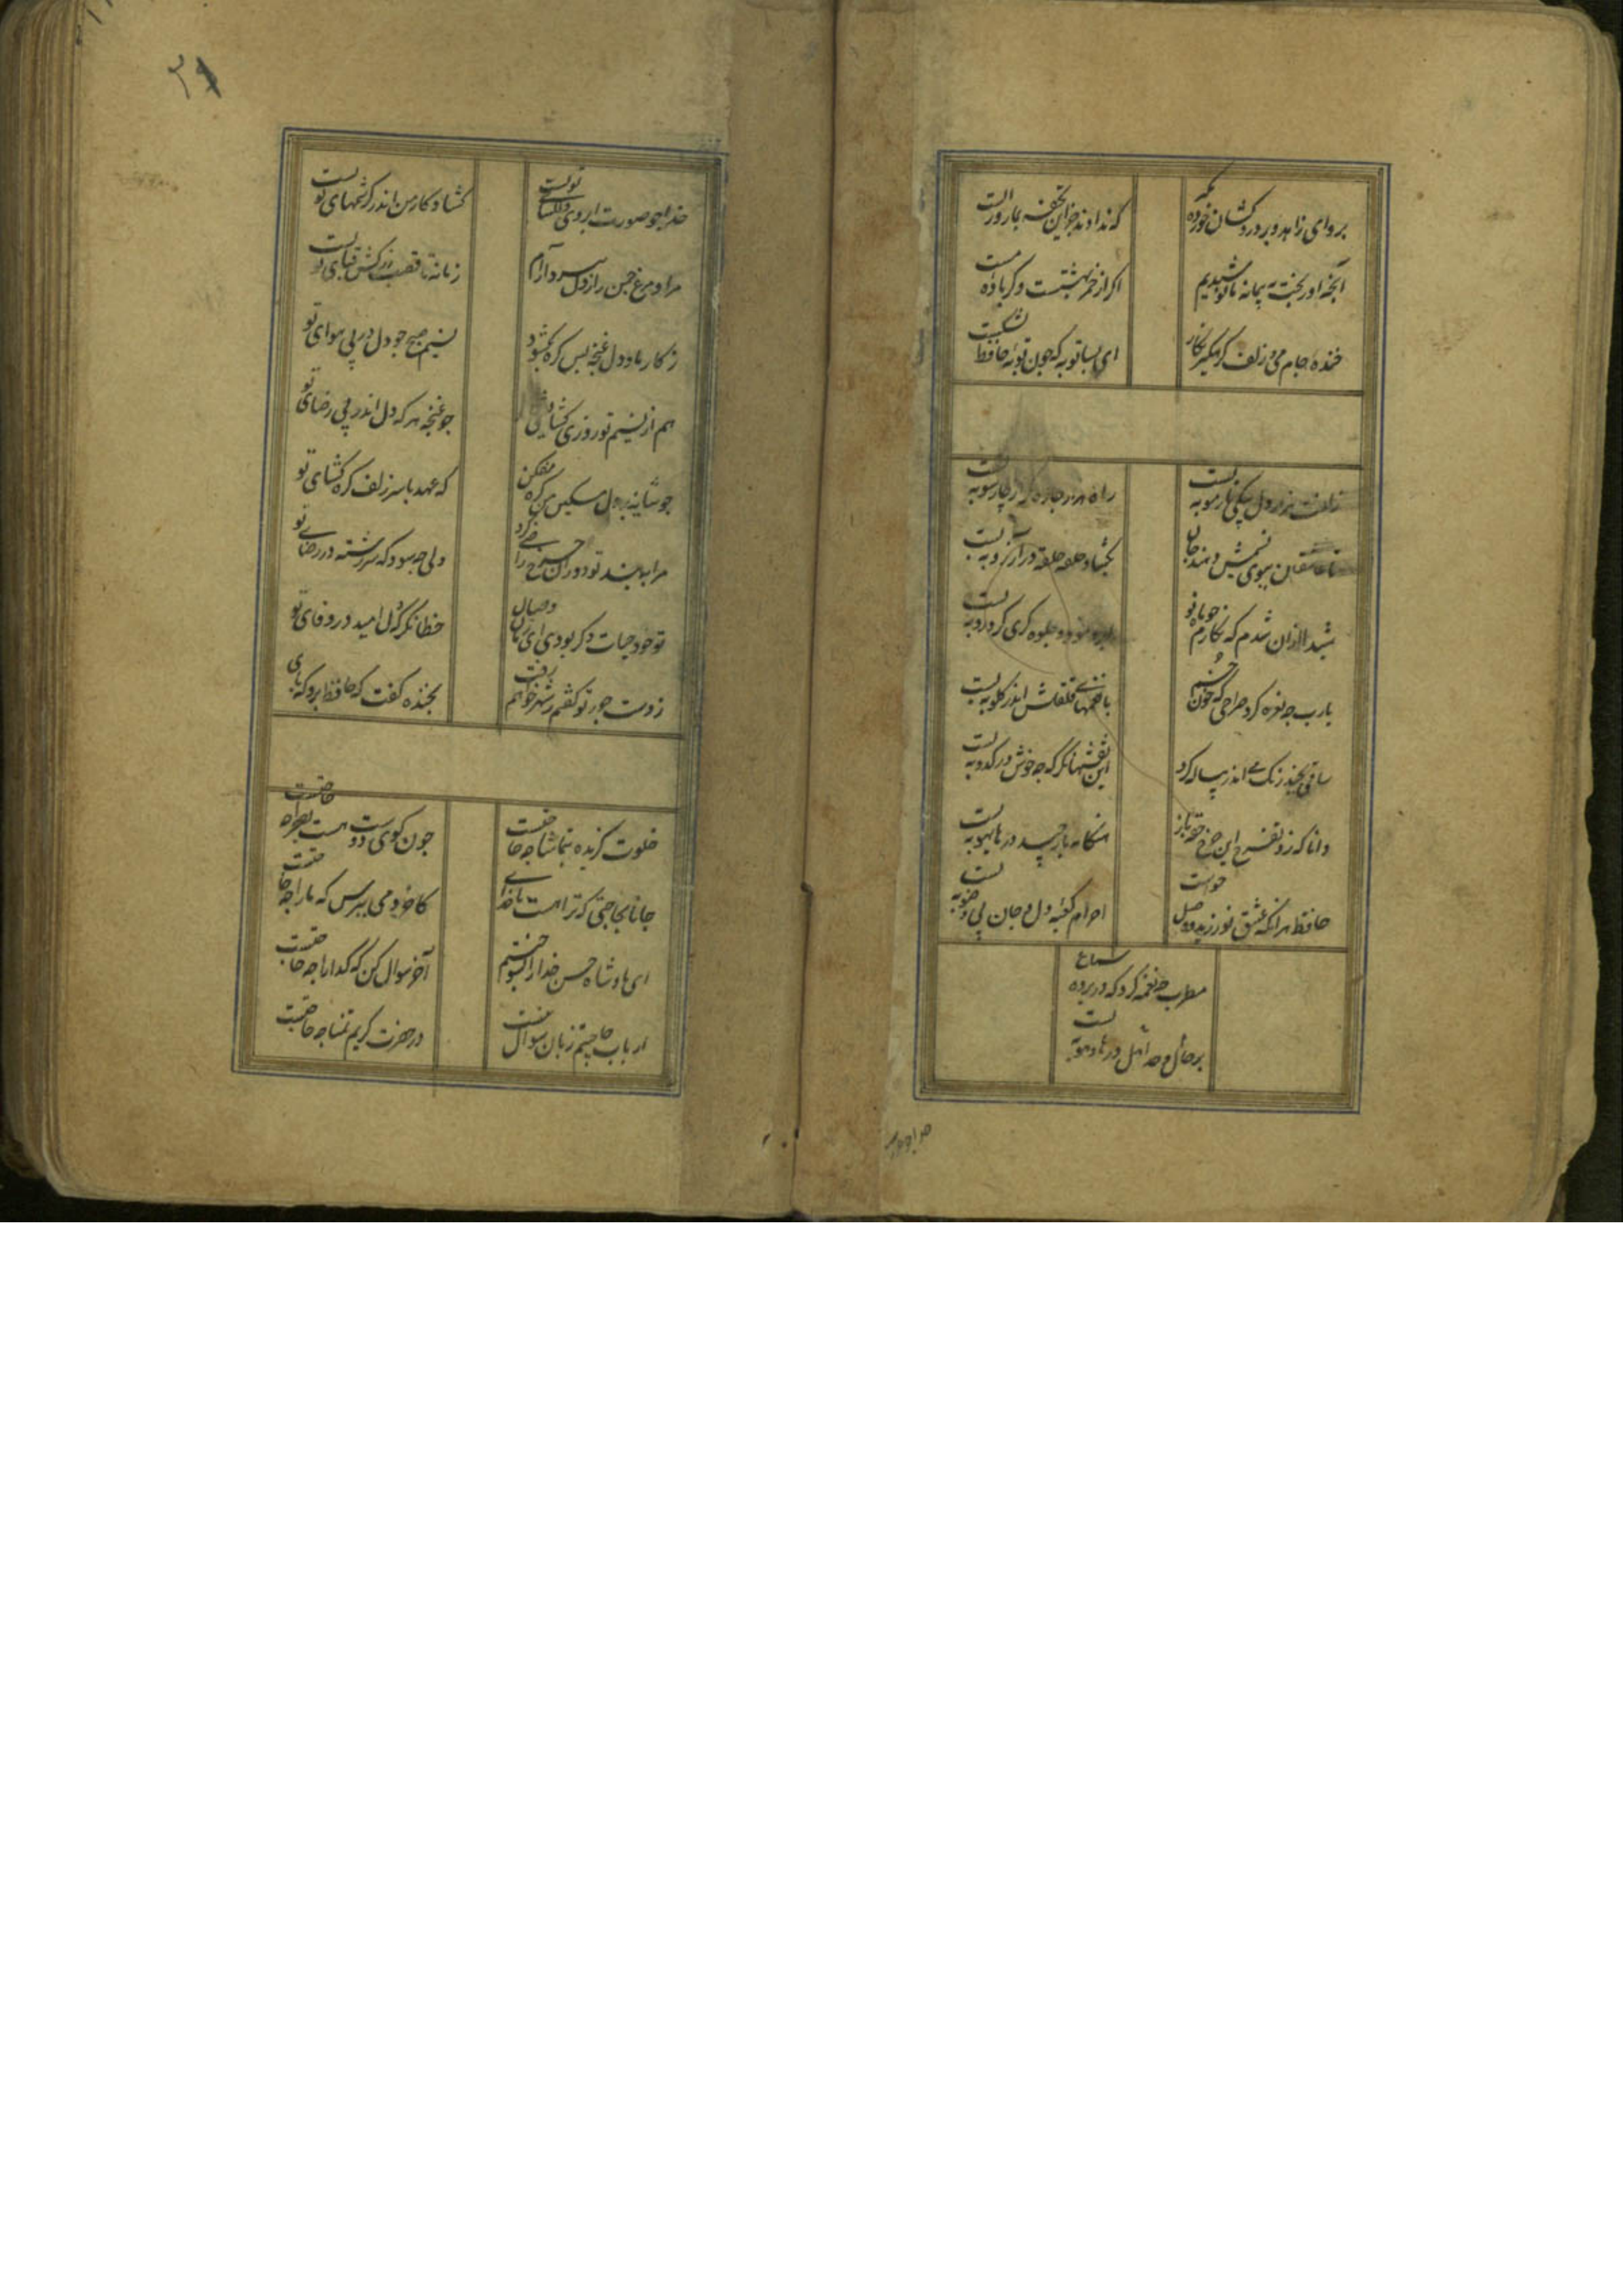 برو ای زاهد و بر دردکشان خورده مگیر
که ندادند جز این تحفه بما روز الست
آنچه او ریخت به پیمانه ما نوشیدیم
اگر از خمر بهشتست وگر باده مست
خنده جام می و زلف گره گیر نگار
ای بسا توبه که چون توبه حافظ بشکست
زلفت هزار دل بیکی تار مو به بست
راه هزار چاره گر از چار سو به بست
تا عاشقان ببوی نسیمش دهند جان
بگشاد نافه و در آرزو به بست
شیدا از آن شدم که نگارم چو ماه نو
ابرو نمود و جلوه گری کرد و رو به بست
یارب چه نعره کرد صراحی که خون خم
با نغمهای قلقلش اندر گلو به بست
ساقی بچند رنگ می اندر پیاله کرد
این نقشها نگر که چه خوش در کدو به بست
دانا که زد تفرج این چرخ حقه باز
هنگامه باز چید و در هایهو به بست
حافظ هر آنکه عشق نورزید و وصل خواست
احرام کعبه دل و جان بی وضو به بست
مطرب چه نغمه کرد که در پرده سماع
بر حال و جد اهل در ها و هو به بست
۲۹
خدا چو صورت ابروی دلگشای تو بست
گشاد کار من اندر کرشمهای تو بست
مرا و مرغ چمن را ز دل ببرد آرام
زمانه تا قصب زرکش قبای تو بست
ز کار ما و دل غنچه بس گره بگشود
نسیم صبح چو دل در پی هوای تو
هم از نسیم تو روزی گشایشی
چو غنچه هر که دل اندر پی رضای تو
چو شانه بر دل مسکین من گره مفکن
که عهد با سر زلف گره گشای تو
مرا به بند تو دوران چرخ راضی کرد
ولی چه سود که سر رشته در رضای تو
تو خود حیات دگر بودی ای زمان وصال
خطا نگر که دل امید در وفای تو
ز دست جور تو گفتم ز شهر خواهم رفت
بخنده گفت که حافظ برو که پای
خلوت گزیده بتماشا چه حاجتست
چون کوی دوست هست بصحرا چه حاجتست
جانا بحاجتی که ترا هست با خدای
کاخر دمی بپرس که ما را چه حاجتست
ای پادشاه حسن خدا را بسوختیم
آخر سوال کن که گدا را چه حاجتست
ارباب حاجتیم و زبان سوال نیست
در حضرت کریم تمنا چه حاجتست